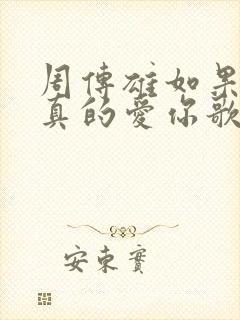 周傳雄如果
真的愛你歌
安東實